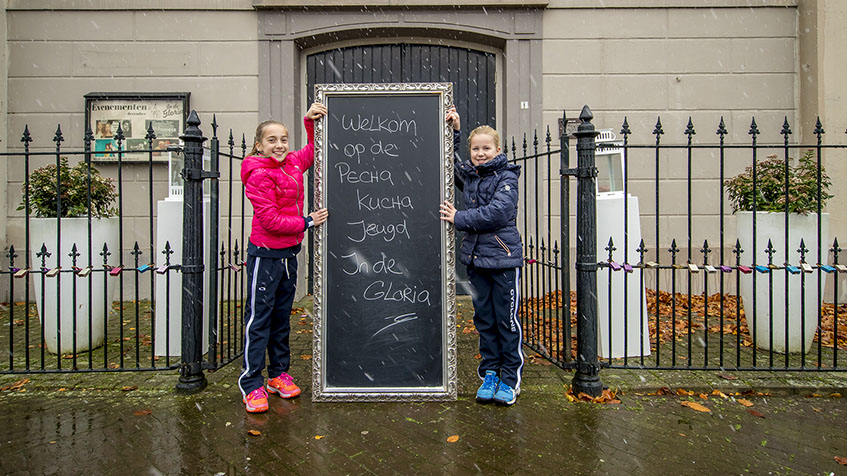 Evenementen
Gloria
Welkom
op de
Pecha
Kucha
Jeugd
In de
Gloria
1